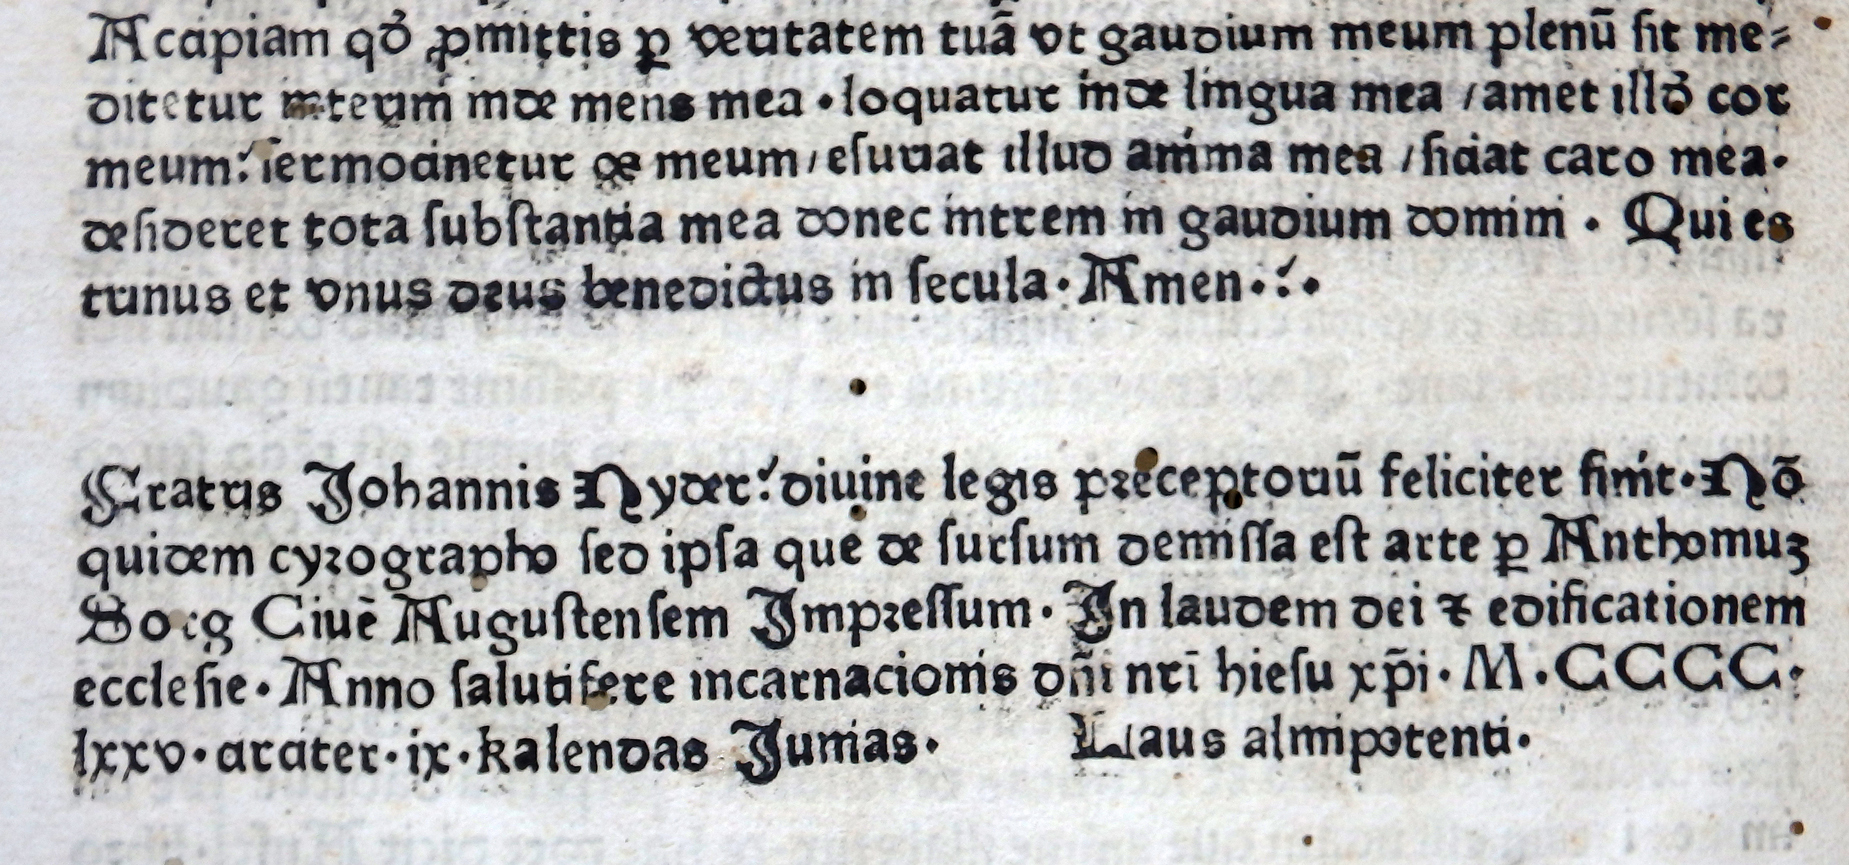 Accipiam qď ꝓmittis ꝑ veritatem tuã vt gaudium meum plenũ ſit me⸗
ditetur interim inde mens mea · loquatur inde lingua mea / amet illď cor
meum: ſermocinetur os meum / eſuriat illud anima mea / ſiciat caro mea·
deſideret tota ſubſtantia mea donec intrem in gaudium domini · Qui es
trinus et vnus deus benedictus in ſecula · Amen ·:·
Fratris Johannis Nyder: diuine legis preceptoriũ feliciter finit · Nõ
quidem cyrographo ſed ipſa que de ſurſum demiſſa eſt arte ꝑ Anthoniuꝫ
Sorg Ciuē Auguſtenſem Jmpreſſum · Jn laudem dei ⁊ edificationem
eccleſie · Anno ſalutifere incarnacionis dñi nrī hieſu xp̄i · M · CCCC ·
lxxv · arciter · ix · kalendas Junias · Laus almipotenti ·